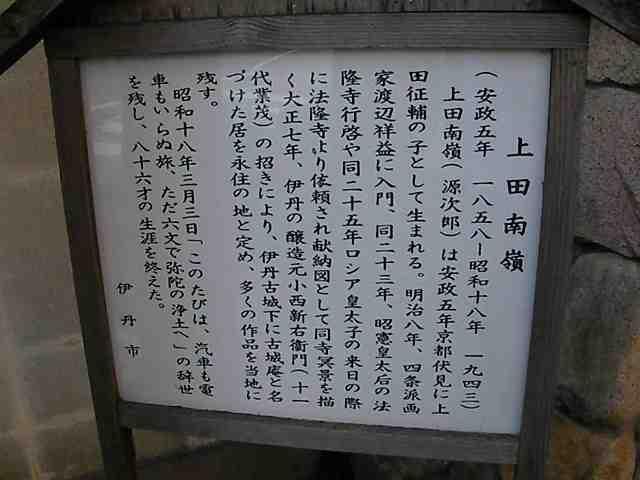 上田南嶺
（安政五年 一八五八ー昭和十八年 一九四三）
上田南嶺（源次郎）は安政五年京都伏見に上
田征輔の子として生まれる。明治八年、四条派画
家渡辺祥益に入門、同二十三年、昭憲皇太后の法
隆寺行啓や同二十五年ロシア皇太子の来日の際
に法隆寺より依頼され献納図として同寺冥景を描
く大正七年、伊丹の醸造元小西新右衛門（十一
代業茂）の招きにより、伊丹古城下に古城庵と名
づけた居を永住の地と定め、多くの作品を当地に
残す。
昭和十八年三月三日「このたびは、汽車も電
車もいらぬ旅、ただ六文で弥陀の浄土へ」の辞世
を残し、八十六才の生涯を終えた。
伊丹市